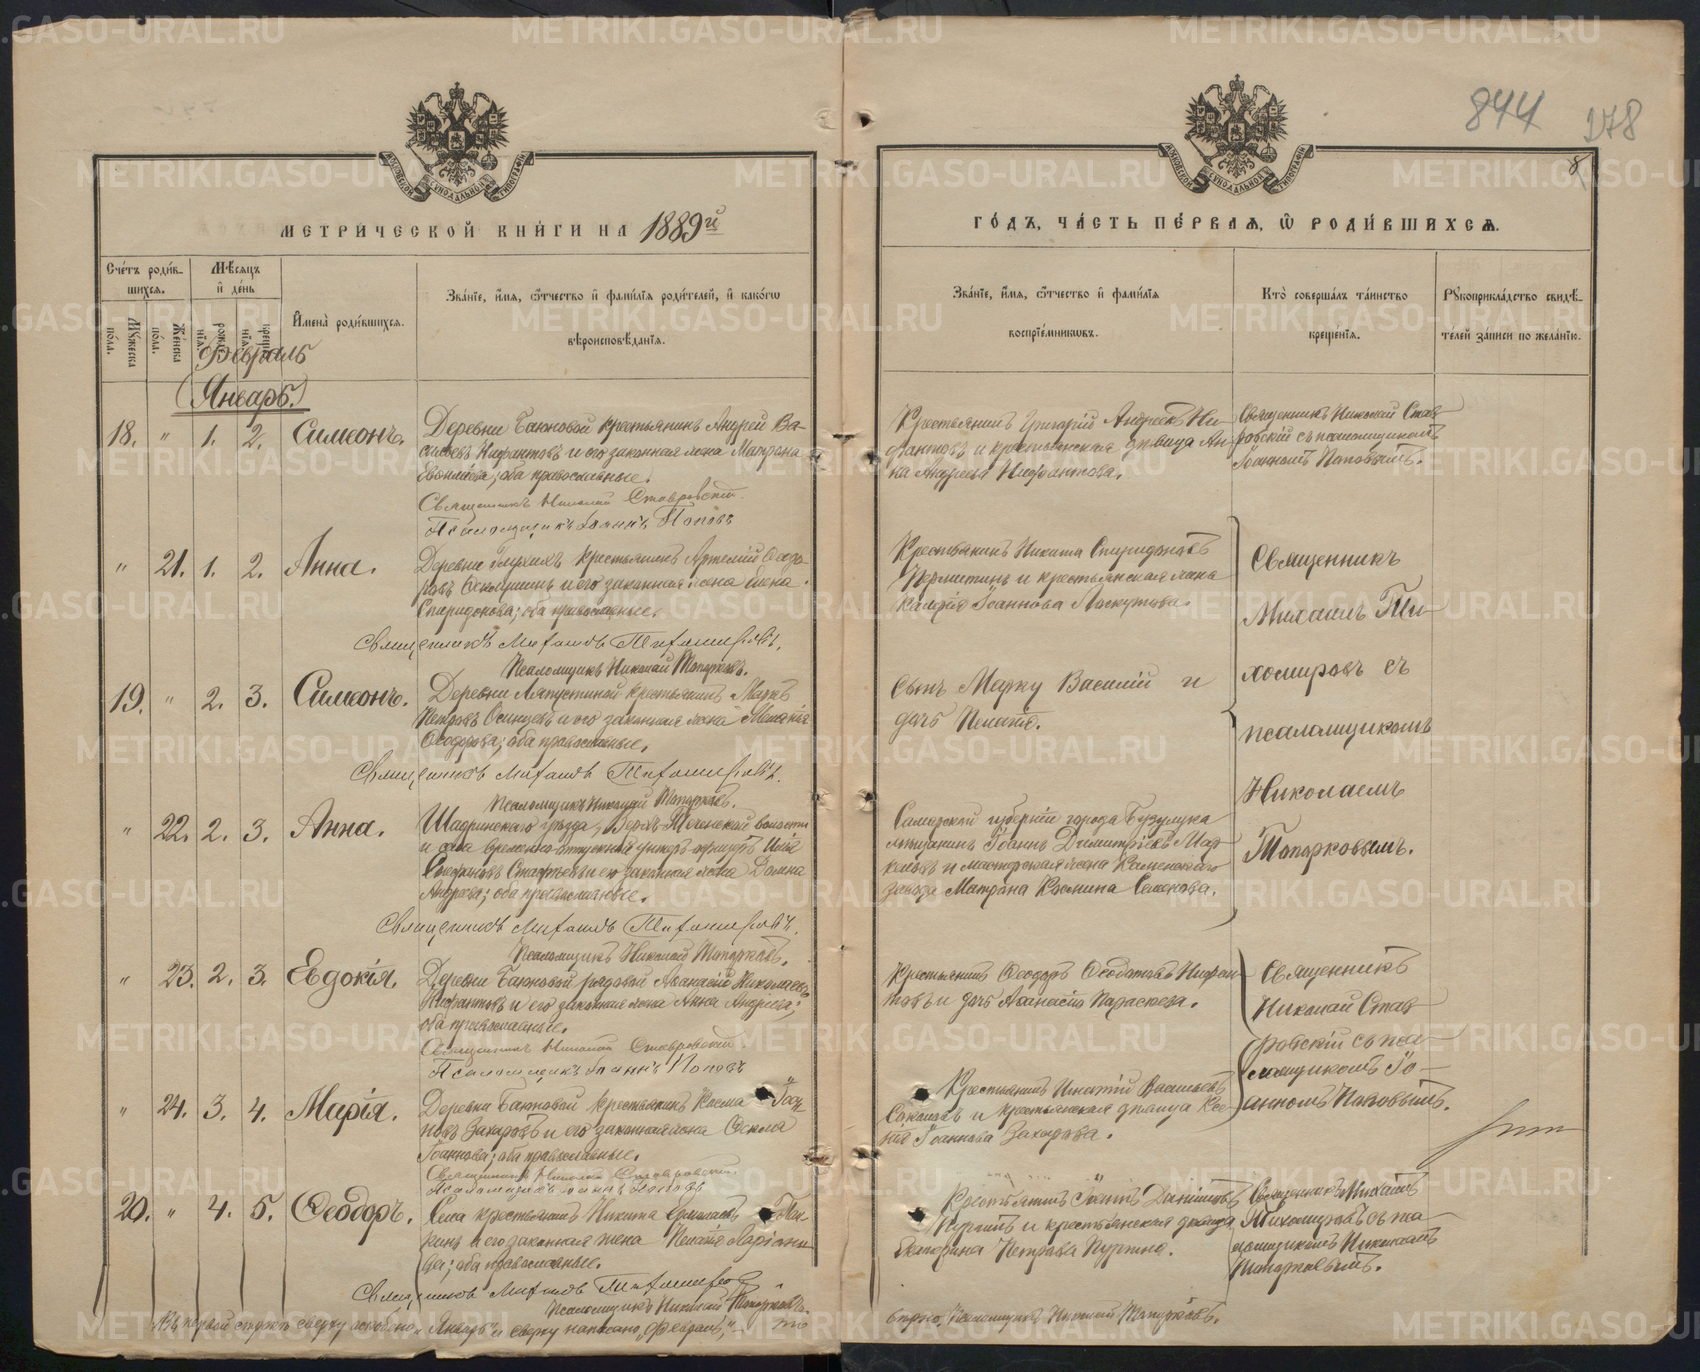 844 278
8
МОСКОВСКОЙ СѴНОДАЛЬНОЙ ТИПОГРАФІИ
МОСКОВСКОЙ СѴНОДАЛЬНОЙ ТИПОГРАФІИ
МЕТРИЧЕСКОЙ КНИГИ НА 1889й
ГОДЪ, ЧАСТЬ ПЕРВАЯ, Ѿ РОДИВШИХСЯ.
Счетъ родив-
шихся.
Мѣсяцъ
и день
Мужеска пола.
Женска пола.
рожденія
крещенія
Имена родившихся.
Званіе, имя, ѿтчество и фамилія родителей, и какогѡ
вѣроисповѣданія.
Званіе, имя, ѿтчество и фамилія
воспріемниковъ.
Кто совершалъ таинство
крещенія.
Рукоприкладство свидѣ-
телей записи по желанію.
Февраль
(Январь.)
18. " 1. 2. Симеонъ.
Деревни Банновой крестьянинъ Андрей Ва-
сильевъ Нифантовъ и его законная жена Матрона
оба православные.
Священникъ Николай Ставровскій
Псаломщикъ Іоаннъ Поповъ
Крестьянинъ Григорій Андреевъ Ни-
фантовъ и крестьянская дѣвица Ан-
на Андреева Нифантова.
Священникъ Николай Став-
ровскій съ псаломщикомъ
Іоанномъ Поповымъ.
" 21. 1. 2. Анна.
Деревни крестьянинъ Артемій Ѳеодо-
ровъ и его законная жена Елена
Спиридонова; оба православные.
Священникъ Михаилъ Тихомировъ.
Псаломщикъ Николай Топорковъ.
Крестьянинъ Никита Спиридоновъ
и крестьянская жена
Іоаннова Лоскутова.
Священникъ
Михаилъ Ти-
хомировъ съ
псаломщикомъ
Николаемъ
Топорковымъ.
19. " 2. 3. Симеонъ.
Деревни крестьянинъ Маркъ
Петровъ Осинцевъ и его законная жена Меланія
Ѳеодорова; оба православные.
Священникъ Михаилъ Тихомировъ.
Псаломщикъ Николай Топорковъ.
Сынъ Марку Василій и
дочь Пелагія.
" 22. 2. 3. Анна.
Шадринскаго уѣзда, Верхъ-Теченской волости
и села временно-отпускной унтеръ-офицеръ Илія
и его законная жена Домна
Андреева; оба православные.
Священникъ Михаилъ Тихомировъ.
Псаломщикъ Николай Топорковъ.
Самарской губерніи города Бузулука
мѣщанинъ Іоаннъ Димитріевъ Мар-
ковъ и мастерская жена Каменскаго
завода Матрона Козмина Семенова.
" 23. 2. 3. Евдокія.
Деревни Банновой рядовой Аѳанасій Николаевъ
Нифантовъ и его законная жена Анна Андреева;
оба православные.
Священникъ Николай Ставровскій
Псаломщикъ Іоаннъ Поповъ
Крестьянинъ Ѳеодоръ Нифан-
товъ и дочь Аѳанасія Параскева.
Священникъ
Николай Став-
ровскій съ пса-
ломщикомъ Іо-
анномъ Поповымъ.
" 24. 3. 4. Марія.
Деревни Банновой крестьянинъ Косма Іоан-
новъ Захаровъ и его законная жена Ѳекла
Іоаннова; оба православные.
Священникъ Николай Ставровскій
Псаломщикъ Іоаннъ Поповъ
Крестьянинъ Игнатій Васильевъ
Соколовъ и крестьянская дѣвица Ксе-
нія Іоаннова Захарова.
20. " 4. 5. Ѳеодоръ.
Села крестьянинъ Никита
и его законная жена Пелагія Ларіоно-
ва; оба православные.
Священникъ Михаилъ Тихомировъ
Псаломщикъ Николай Топорковъ.
Крестьянинъ Іоаннъ Даніиловъ
Пургинъ и крестьянская дѣвица
Екатерина Петрова Пургина.
Священникъ Михаилъ
Тихомировъ съ пса-
ломщикомъ Николаемъ
Топорковымъ.
Въ первой строкѣ сверху оскоблено „Январь“ и сверху написано „Февраль“, – то
вѣрно. Псаломщикъ Николай Топорковъ.
METRIKI.GASO-URAL.RU